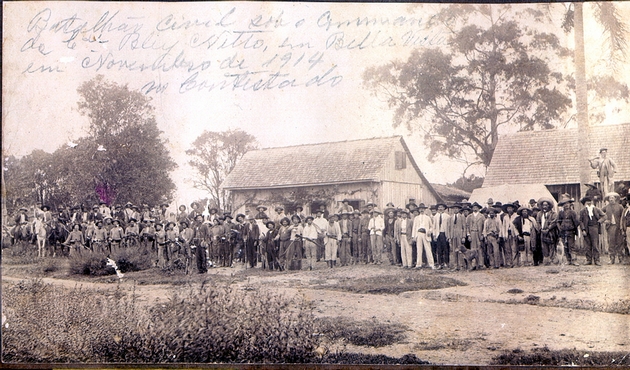 Batalhão civil sob o Comman
de Cel Bley Netto, em Bella Vista
em Novembro de 1914
no Contestado